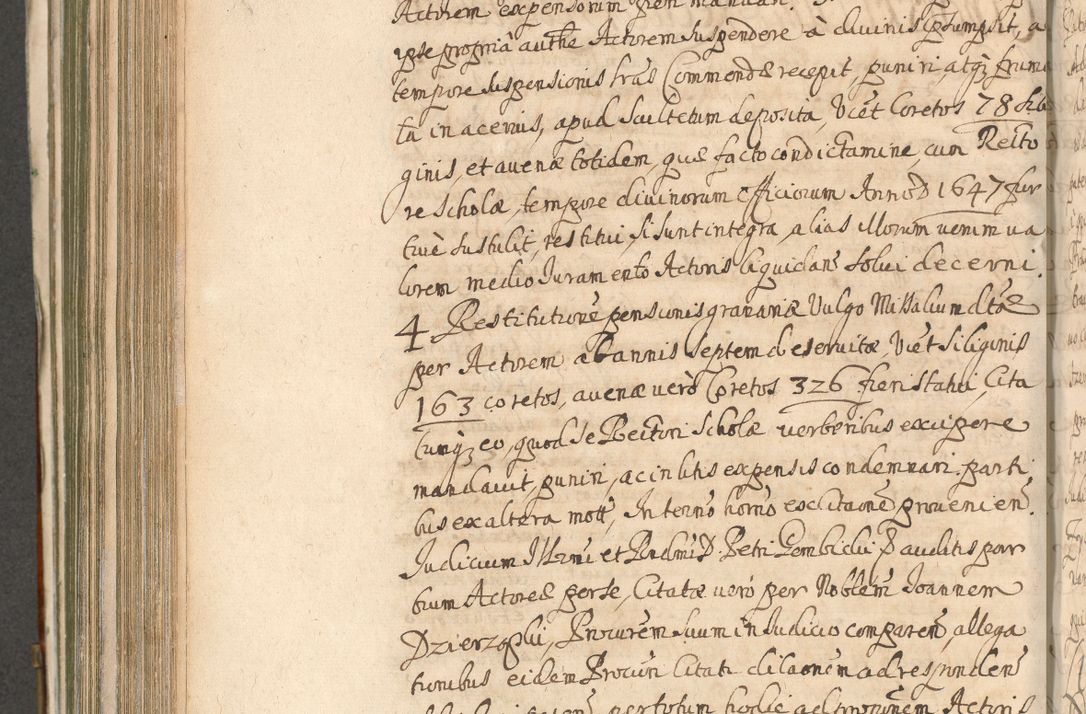 Actorem expensorum
ipse propriâ authe Actorem suspendere à divinis presumpsit, a
tempore suspensionis Commendæ recepit, puniri, atqz frumen
ta in acervis, apud Scultetum deposita, Vict Coretos 78 sili
ginis, et avenæ totidem, quæ facto condictamine, cum Recto
re Scholæ, tempore divinorum Officiorum Anno D 1647 fur
tivè sustulit, restitui, si sunt integra, alias illorum verum va
lorem medio Juramento Actoris liquidan solvi decerni.
4 Restitutione pensionis granariæ Vulgo Missalium dtæ
per Actorem ab annis septem deservitæ, Vict Siliginis
163 coretos, avenæ verò Coretos 326 fieri statui, Cita
tumqz eo, quod se Rectori Scholæ verberibus excipere
mandavit, puniri, ac in litis expensis condemnari. parti
bus ex altera mott, In termo horno ex citaone provenien.
Judicium Illrmi et Rndmi D. Petri Gembicki P auditis par
tium Actoreæ per se, Citatæ verò per Noblem Joannem
Dzierzgski, Procurem suum in Judicio comparen, allega
tionibus eidem Procuri Citati dilaonem ad responden
per totum hodie ad Actoris